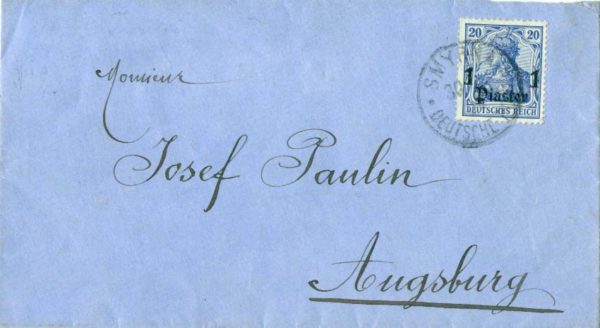 20 20
1 1
Piaster
DEUTSCHES REICH
DEUTSCHE
Monsieur
Josef Paulin
Augsburg